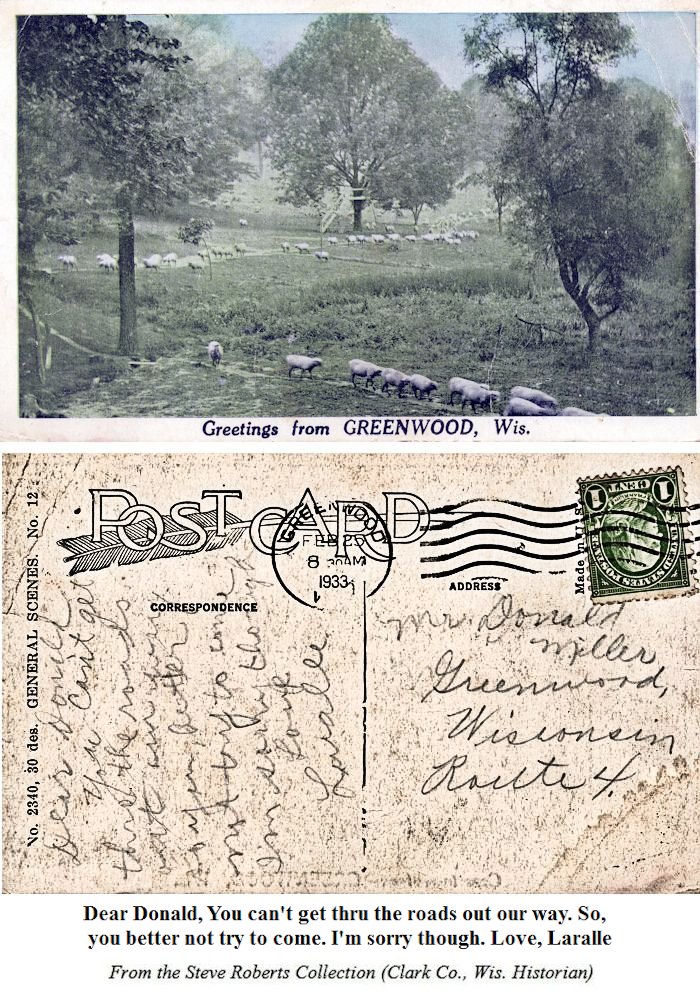 Greetings from GREENWOOD, Wis.
POST CARD
GREENWOOD
FEB 25
8 30AM
1933
1 1
Made in U.S.
No. 2340, 30 des. GENERAL SCENES. No. 12
CORRESPONDENCE
ADDRESS
Dear Donald
You Cant get
thru the roads
out our way
so you better
not try to come
Im sorry though
Love
Laralle
Mr. Donald
Miller
Greenwood,
Wisconsin
Route 4.
Dear Donald, You can't get thru the roads out our way. So,
you better not try to come. I'm sorry though. Love, Laralle
From the Steve Roberts Collection (Clark Co., Wis. Historian)